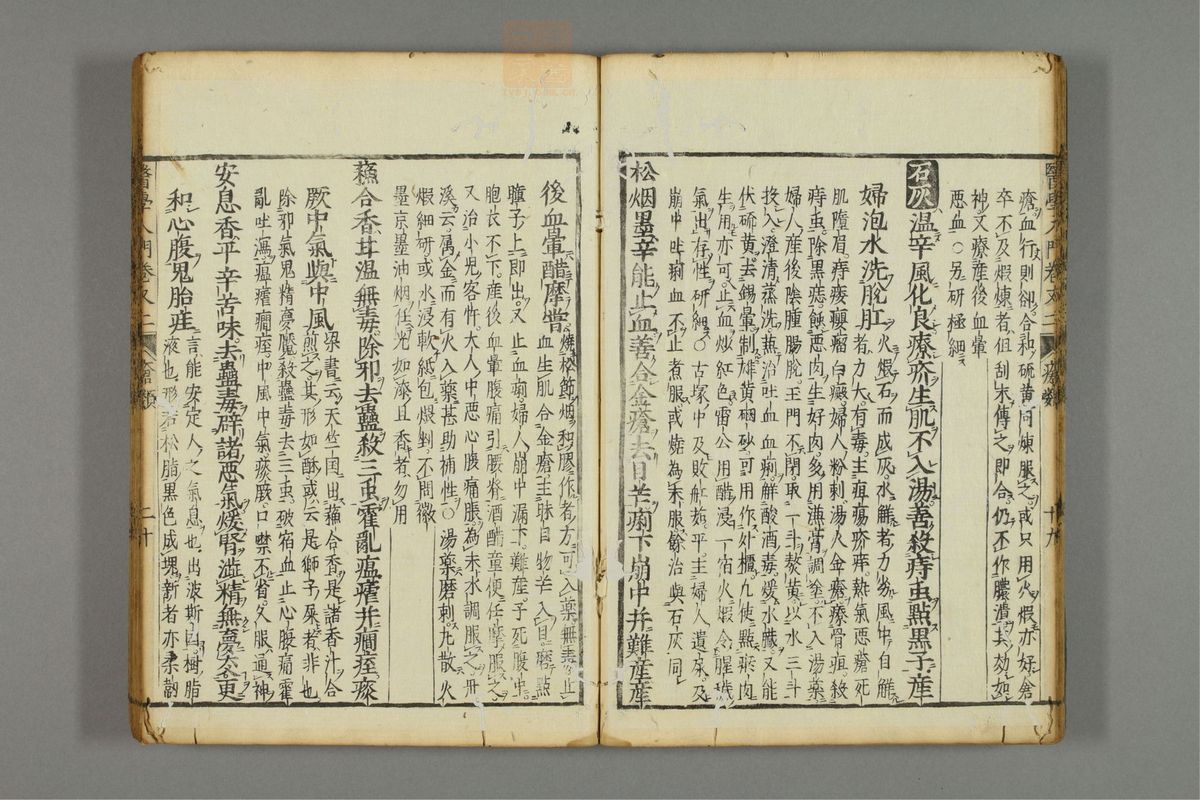 瘀血行則卻合和硫黃同煉服之或只用火煅亦好倉
卒不及煆煉者但刮末傅之即合仍不作膿潰其効如
神又療産後血暈
惡血○另研極細
石灰溫辛風化良療疥生肌不入湯善殺痔虫點黒子産
婦泡水洗脫肛火煆石而成灰水解者力劣風中自解
者力大有毒主疽瘍疥痒熱氣惡瘡死
肌墮眉痔瘻癭瘤白癜婦人粉刺湯火金瘡療骨疽殺
痔虫除黒痣蝕惡肉生好肉多用漁膏調塗不入湯藥
婦人産後陰腫腸脫玉門不閉取一斗熬黃以水三斗
投入澄清蒸洗兼治吐血血痢解酸酒毒煖水臟又能
伏硫黃去錫暈制雄黃硇砂可用作外櫃丸使點瘀肉
生用亦可止血炒紅色雷公用醋浸一宿火煆令腥穢
氣出存性研細○古塚中及敗舡茹平主婦人遺尿及
崩中吐痢血不止煮服或燒為末服餘治與石灰同
松烟墨辛能止血善合金瘡去目苦痢下崩中并難産産
後血暈醋摩嘗燒松節烟和膠作者方可入藥無毒止
血生肌合金瘡主眯目物芒入目磨點
瞳子上即出又止血痢婦人崩中漏下難産子死腹中
胞衣不下産後血暈腹痛引腰脊酒醋童便任摩服之
又治小兒客忤大人中惡心腹痛服為末水調服之丹
溪云屬金而有火入藥甚助補性○湯藥磨刺丸散火
煆細研或水浸軟紙包煨剉不問徽
墨京墨油烟任光如漆且香者勿用
蘓合香甘溫無毒除邪去蠱殺三虫霍亂瘟瘧并癎痓痰
厥中氣與中風梁書云天竺囯出蘓合香是諸香汁合
煎之其形如酥或云是獅子屎者非也
除邪氣鬼精夣魘殺蠱毒去三虫破宿血止心腹痛霍
亂吐瀉瘟瘧癎痓中風中氣痰厥口噤不省久服通神
安息香平辛苦味去蠱毒辟諸惡氣煖腎澁精無夣交更
和心腹鬼胎疰言能安定人之氣息也出波斯囯樹脂
液也形若松脂黒色成塊新者亦柔韌
醫學入門卷之二
瘡類
十九
醫學入門卷之二
瘡類
二十